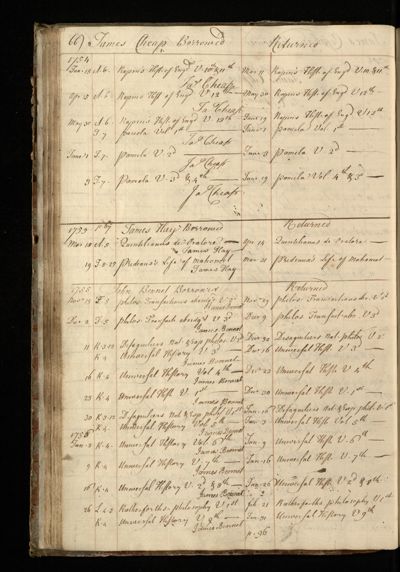 66) James Cheap Borrowed Returned
1754
Rapin's Hist. of Engd V. 10th & 11th Mar 11 Rapin's Hist. of Engd V. 10 & 11th
Jas Cheap
Apr 12 A.6. Rapin's Hist of Engd V. 12th May 30 Rapin's Hist. of Engd V. 12th
Jas Cheap
May 30 A.6. Rapin's Hist. of Engd V. 13th June 19 Rapin's Hist. of Engd V. 13th
I.7. Pamela Vol. 1st June 1 Pamela Vol. 1st
Jas Cheap
June 1 I.7. Pamela V. 2d June 3 Pamela V. 2d
Jas Cheap
3 I.7. Pamela V. 3d & 4th June 19 Pamela Vol. 4th & 3d
Jas Cheap
1755 James Hay Borrowed Returned
Mar 10 Quintilianus de Oratore Apr 14 Quintilianus de Oratore
James Hay
19 Prideaux's Life of Mahomet Mar 21 Prideaux's Life of Mahomet
James Hay
1755 John Bonnel Borrowed Returned
Philos. Transactions V. 2d Philos. Transactions V. 2d
James Bonnel
Dec 2 Philos. Transact. abridg'd V. 3d Dec 9 Philos. Transact. abr. V. 3d
James Bonnel
11 K.3.12 Desaguliers Nat. & Exp. philos. V. 2d Dec 30 Desaguliers Nat. philos. V. 2d
K.4 Universal History V. 3d Dec 16 Universal Hist. V. 3d
James Bonnel
16 K.4 Universal History Vol. 4th Dec 23 Universal Hist. V. 4th
James Bonnel
23 K.4 Universal Hist. V. 1st Dec 30 Universal Hist. V. 1st
James Bonnel
30 K.3.12 Desaguliers Nat. & Exp. philos. V. 1st Jan 16 Desaguliers Nat. & Exp. philos. V. 1st
K.4 Universal History Vol. 5th Jan 2 Universal Hist. Vol. 5th
1756 James Bonnel
Jan 2 K.4 Universal History Vol. 6th Jan 9 Universal Hist. V. 6th
James Bonnel
9 K.4 Universal History V. 7th Jan 16 Universal Hist. V. 7th
James Bonnel
16 K.4 Universal History V. 2d & 8th Jan 26 Universal Hist. V. 2d & 8th
James Bonnel
26 Philosophy V. 1st Feb 21 Philosophy V. 1st
K.4 Universal History V. 9th Universal History V. 9th
James Bonnel p. 96